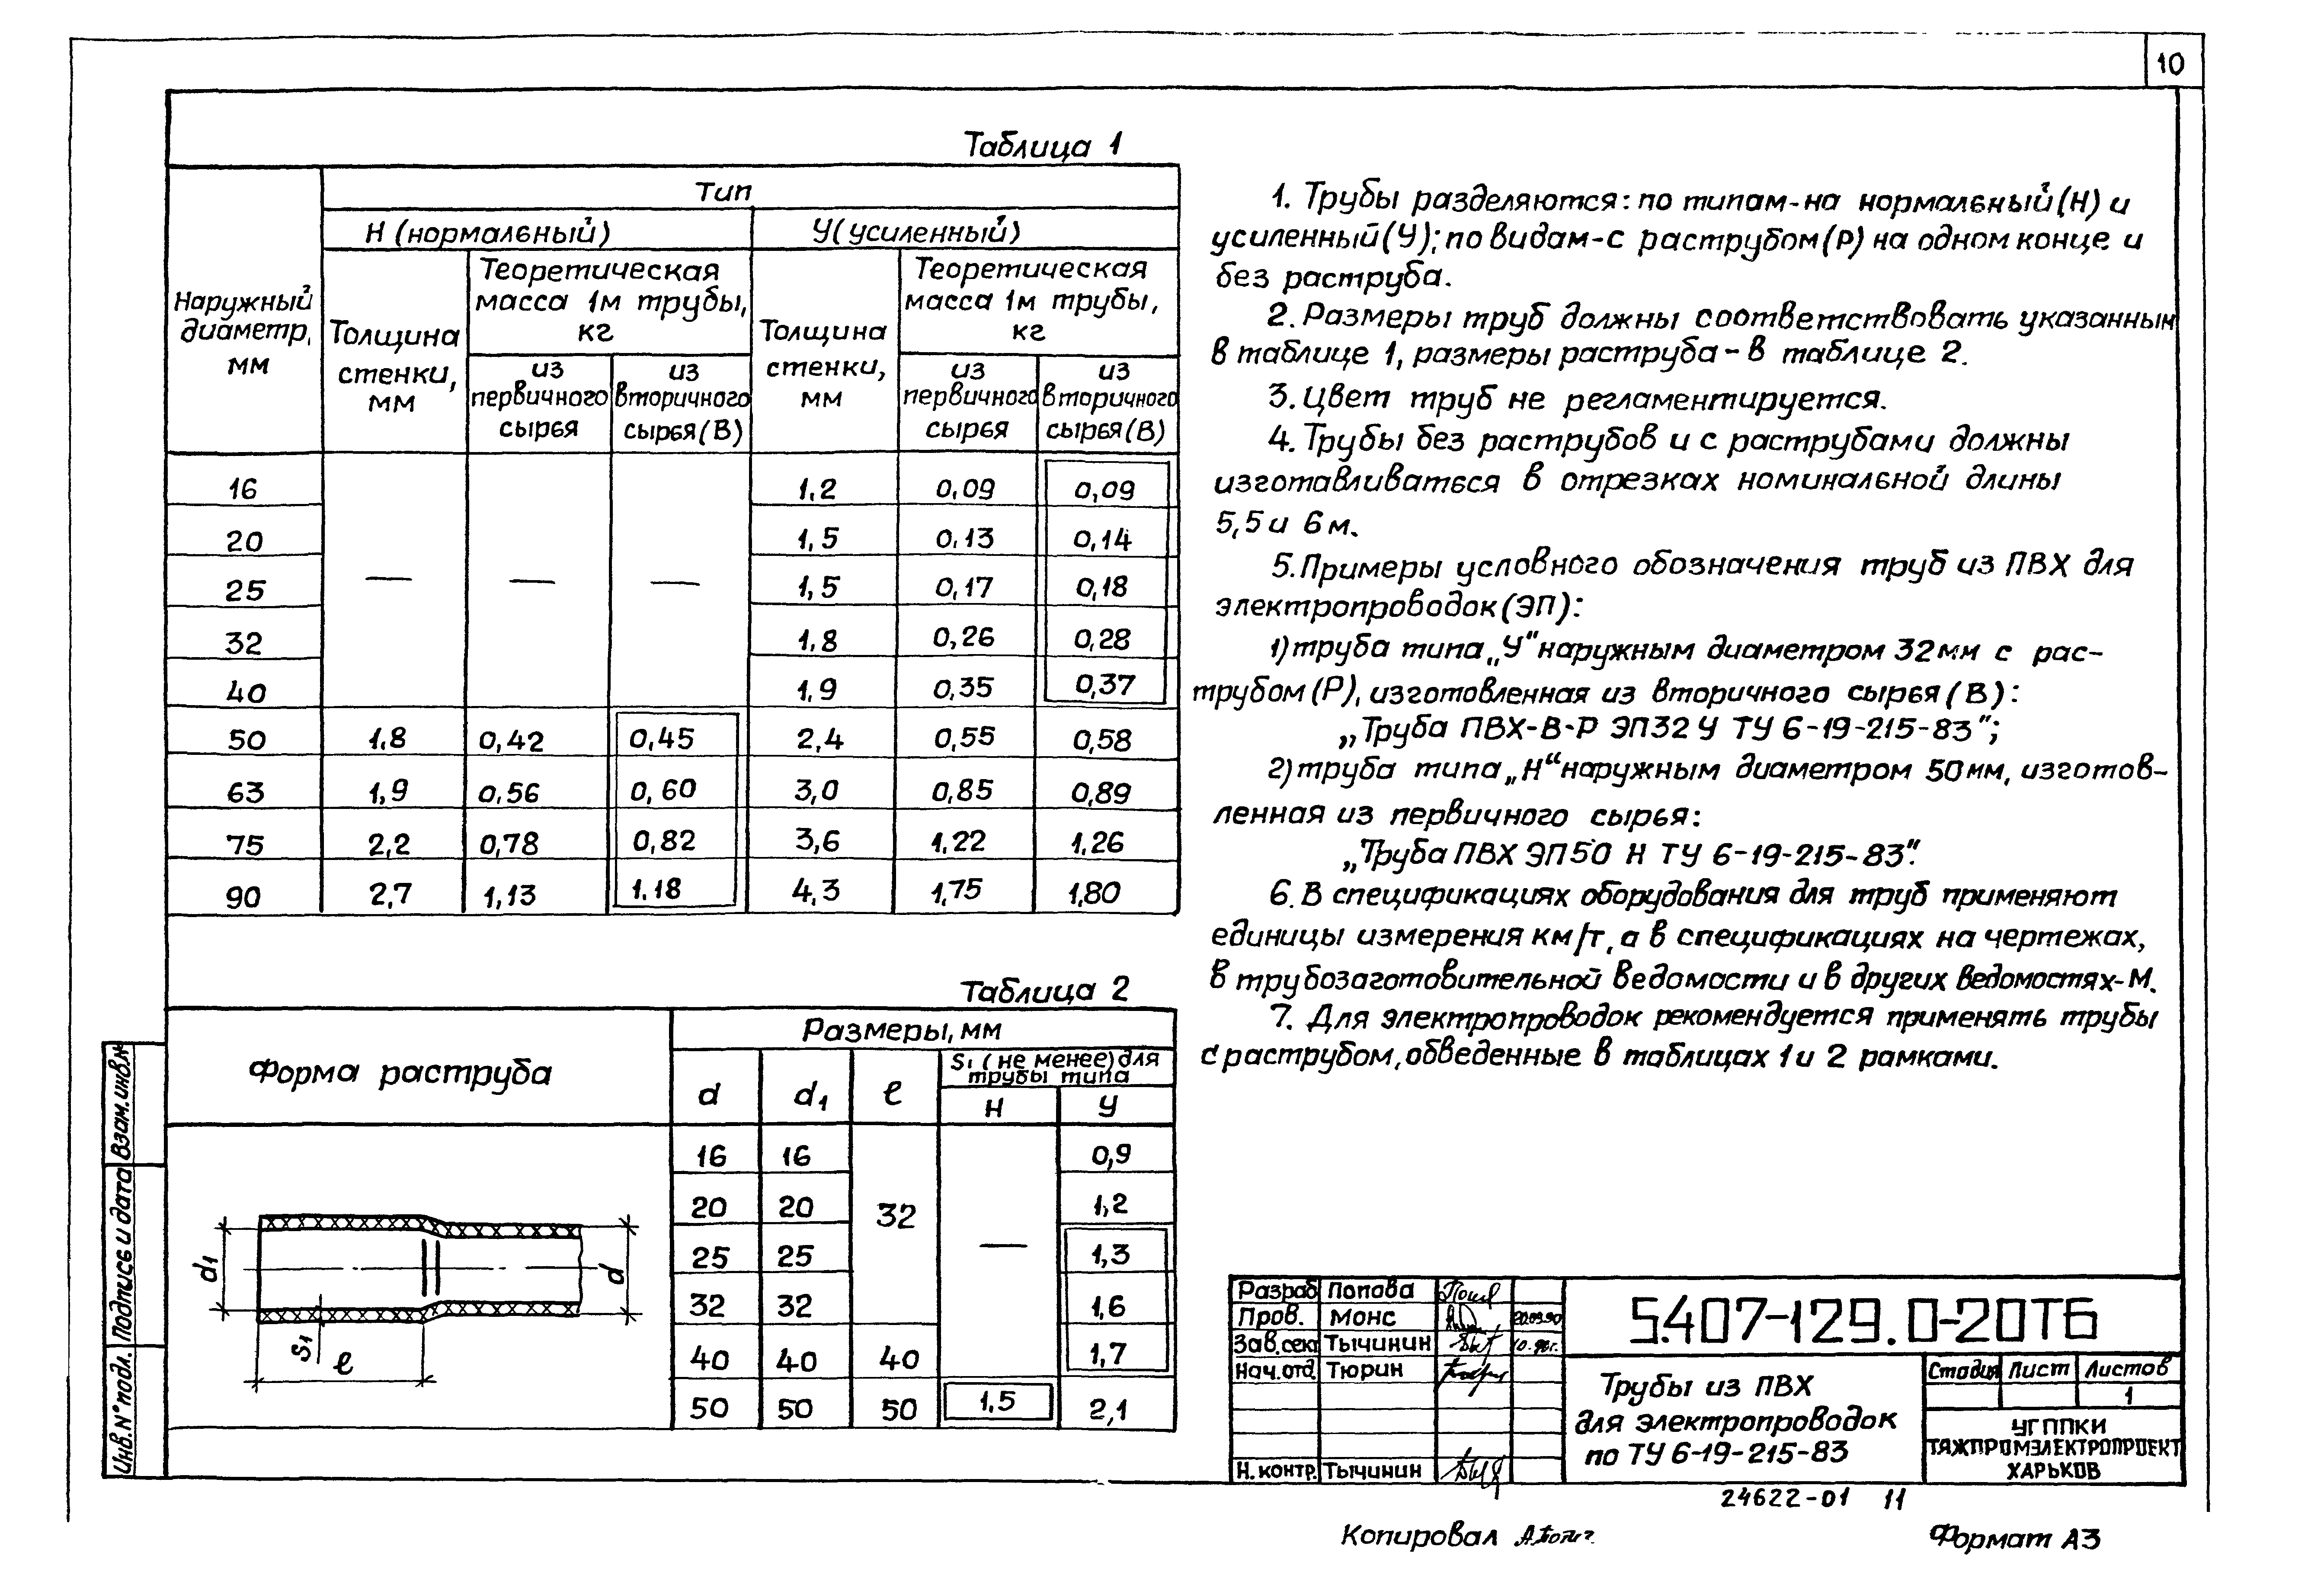 10
Таблица 1
Наружный диаметр, мм
Тип
Н (нормальный)
У (усиленный)
Толщина стенки, мм
Теоретическая масса 1м трубы, кг
Толщина стенки, мм
Теоретическая масса 1м трубы, кг
из первичного сырья
из вторичного сырья (В)
из первичного сырья
из вторичного сырья (В)
16 — — — 1.2 0,09 0,09
20 1,5 0,13 0,14
25 1,5 0,17 0,18
32 1,8 0,26 0,28
40 1,9 0,35 0,37
50 1,8 0,42 0,45 2,4 0,55 0,58
63 1,9 0,56 0,60 3,0 0,85 0,89
75 2,2 0,78 0,82 3,6 1,22 1,26
90 2,7 1,13 1.18 4,3 1,75 1,80
Таблица 2
Форма раструба
Размеры, мм
d d1 ℓ
S1 (не менее) для трубы типа
Н У
16 16 32 — 0,9
20 20 1,2
25 25 1,3
32 32 1,6
40 40 40 1,7
50 50 50 1.5 2,1
d1
d
S1
ℓ
1. Трубы разделяются: по типам-на нормальный (Н) и
усиленный (У); по видам-с раструбом (Р) на одном конце и
без раструба.
2. Размеры труб должны соответствовать указанным
в таблице 1, размеры раструба - в таблице 2.
3. Цвет труб не регламентируется.
4. Трубы без раструбов и с раструбами должны
изготавливаться в отрезках номинальной длины
5,5 и 6 м.
5. Примеры условного обозначения труб из ПВХ для
электропроводок (ЭП):
1) труба типа „У“ наружным диаметром 32мм с рас-
трубом (Р), изготовленная из вторичного сырья (В):
„Труба ПВХ-В-Р ЭП32 У ТУ 6-19-215-83";
2) труба типа „Н“ наружным диаметром 50мм, изготов-
ленная из первичного сырья:
„Труба ПВХ ЭП50 Н ТУ 6-19-215-83".
6. В спецификациях оборудования для труб применяют
единицы измерения км/т, а в спецификациях на чертежах,
в трубозаготовительной ведомости и в других ведомостях-м.
7. Для электропроводок рекомендуется применять трубы
с раструбом, обведенные в таблицах 1 и 2 рамками.
Взам. инв. №
Подпись и дата
Инв. № подл.
Разраб Попова
Пров. Монс 20.09.90
Зав. сект Тычинин
Нач. отд. Тюрин
Н. контр. Тычинин
5.407-129.0-20ТБ
Трубы из ПВХ
для электропроводок
по ТУ 6-19-215-83
Стадия Лист Листов
1
УГППКИ
ТЯЖПРОМЭЛЕКТРОПРОЕКТ
ХАРЬКОВ
24622-01 11
Копировал
Формат А3